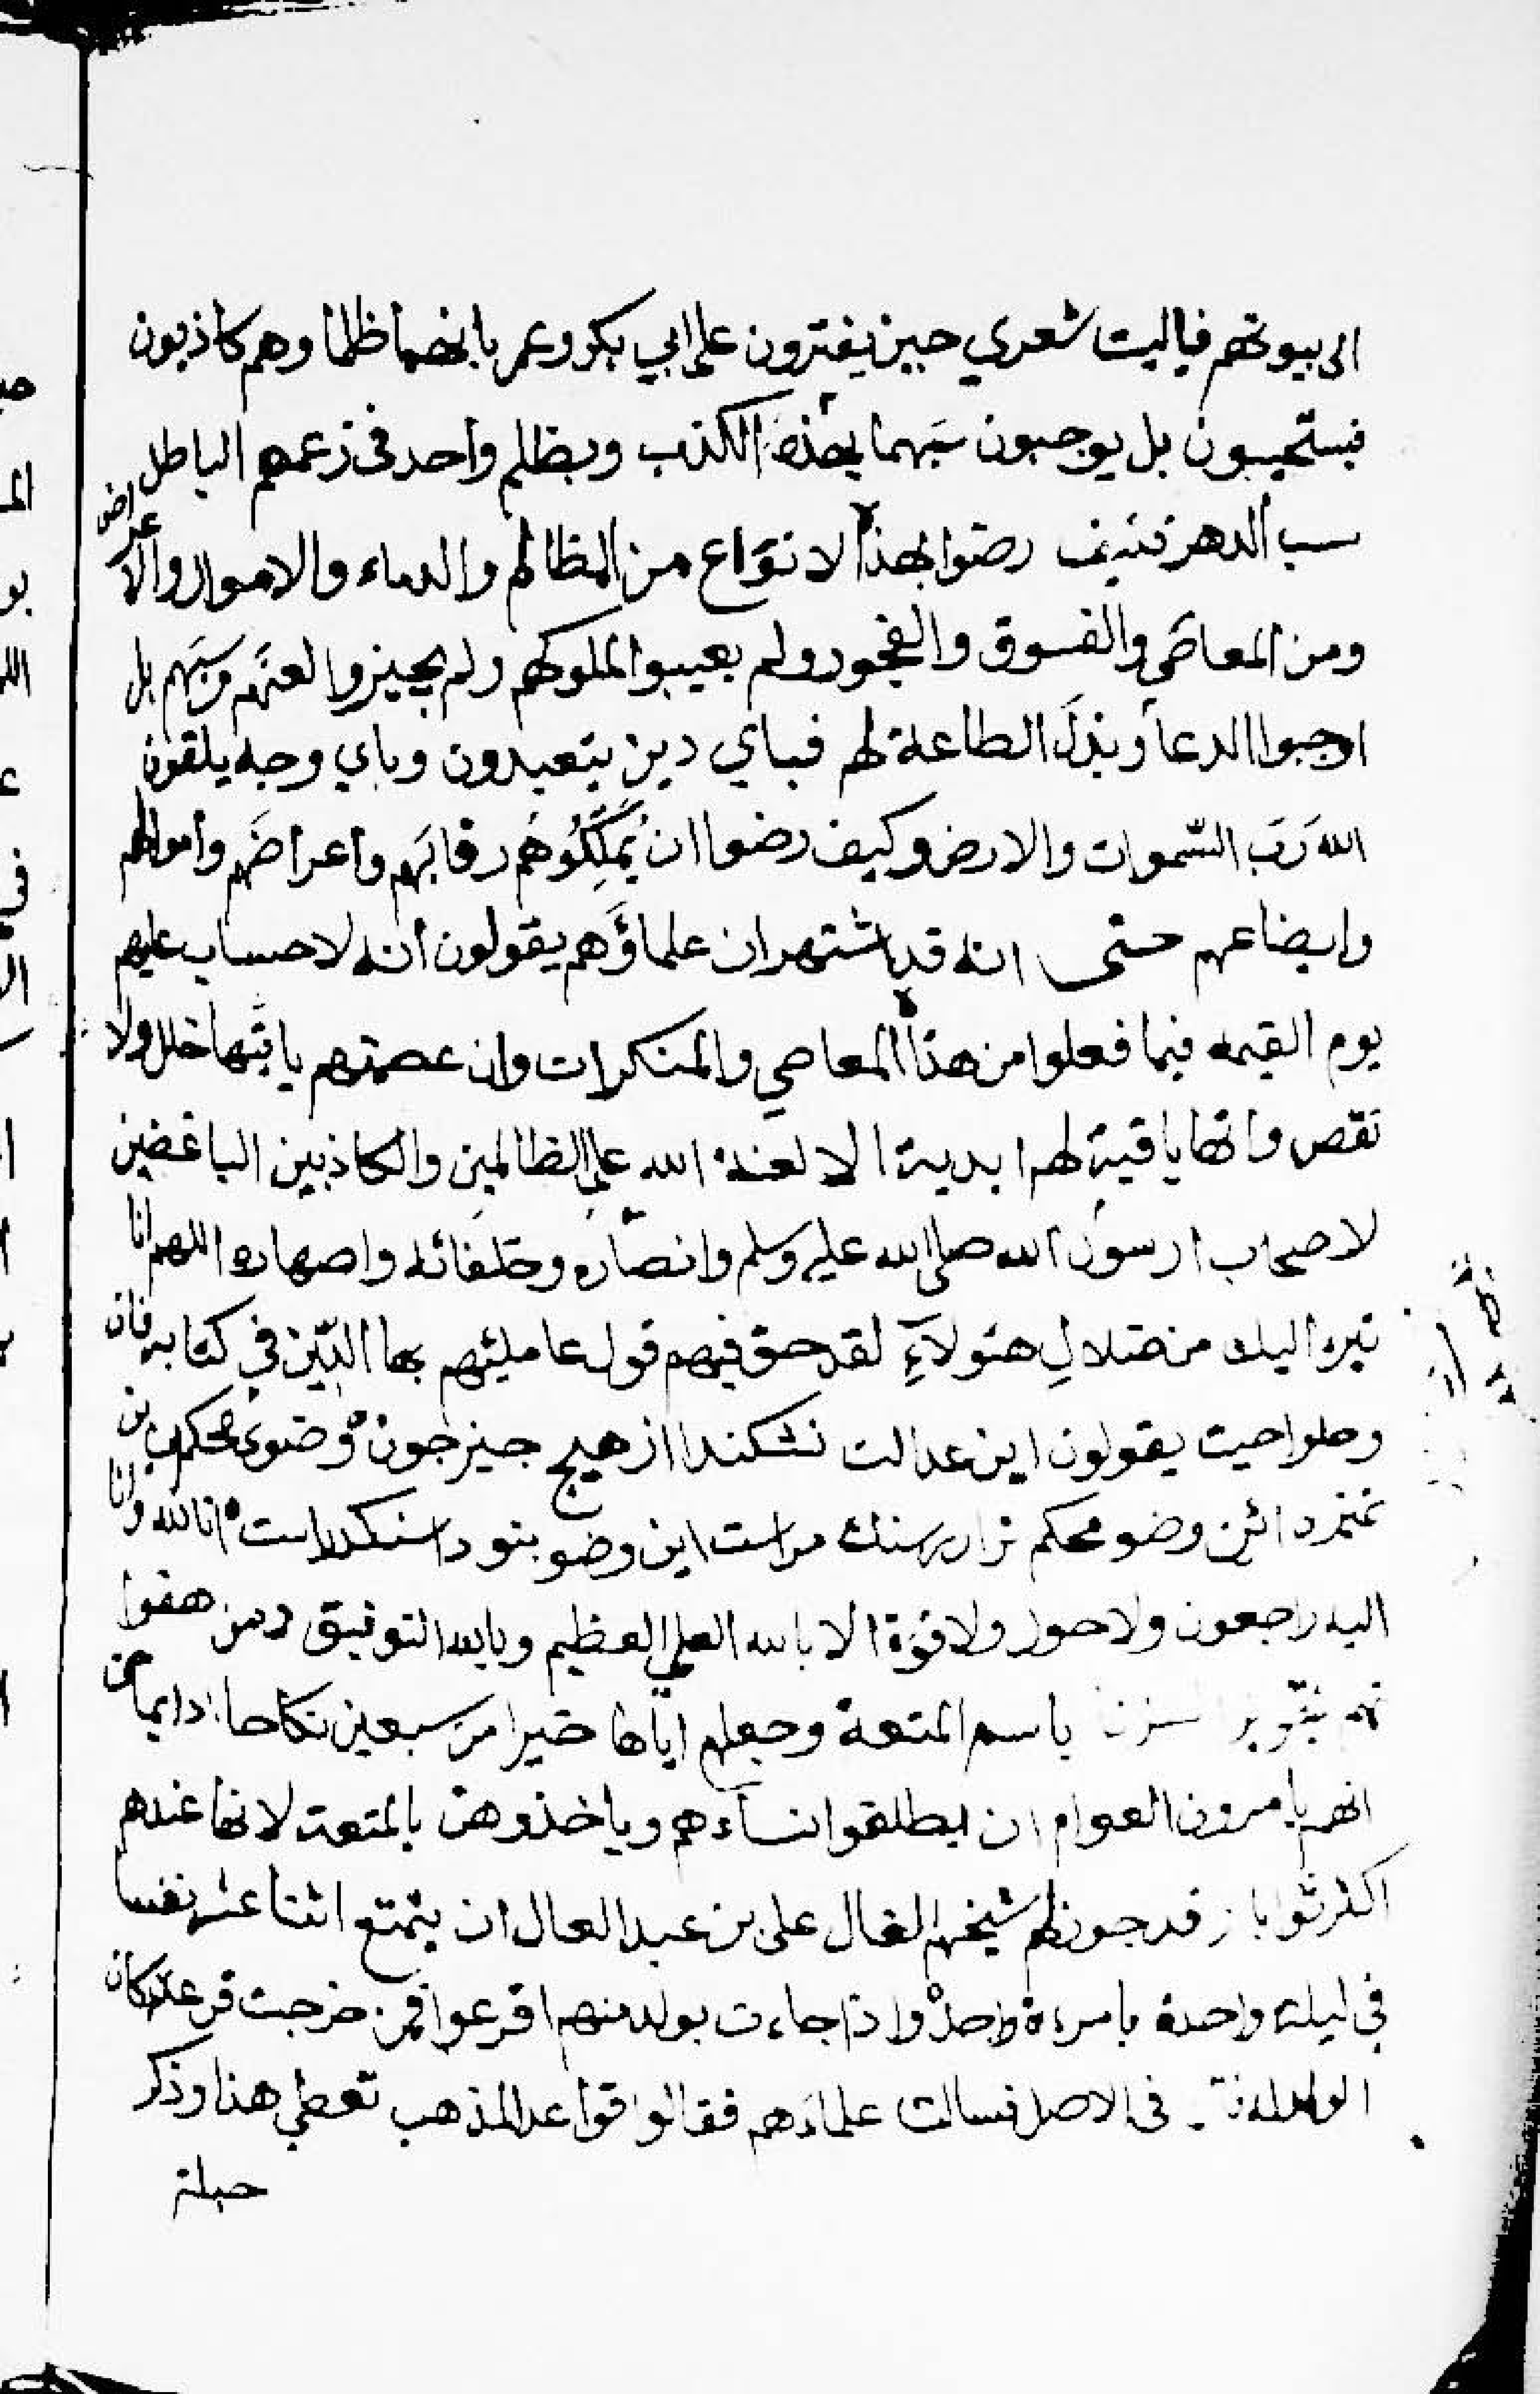 الى بيوتهم فياليت شعري حين يفترون على ابي بكر وعمر بانهما ظلما وهم كاذبون
فيستحبون بل يوجبون سبهما بهذه الكذب وبظلم واحد في زعمهم الباطل
سب الدهر فكيف رضوا بهذا الانواع من المظالم والدماء والاموال والاعراض
ومن المعاصي والفسوق والفجور ولم يعيبوا لملوكهم ولم يجيزوا لعنهم وسبهم بل
اوجبوا الدعا وبذل الطاعة لهم فباي دين يتعبدون وباي وجه يلقون
الله رَبَّ السّموات والارض وكيف رضوا ان يُمَلِّكُوهُم رقابَهم وأعراضَهم وأموالهم
وابضاعهم حتى انه قد اشتهر ان علماؤهم يقولون أنه لا حساب عليهم
يوم القيمه فيما فعلوا من هذا المعاصي والمنكرات وان عصمتهم يا خلل ولا
نقص وانها باقية لهم ابدية الا لعنة الله على الظالمين والكاذبين الباغضين
لاصحاب رسول الله صلى الله عليه وسلم وانصاره وخلفائه واصهاره اللهم انا
نبره اليك من ضلالِ هئولآءِ لقد حق فيهم قول عامليهم بها الدّين في كتابه فان
وحلواحيت يقولون اين عدالت نشكند از هيچ چيز چون وضوى محكم بى بى
تمنرد ائن وضو محكم تراز سنك مراست اين وضو بنود سد سكندر است انا لله وانا
اليه راجعون ولا حول ولا قوة الا بالله العلي العظيم وبالله التوفيق ومن هفوا
تهم تجويز باسم المتعة وجعلهم اياها خيرا من سبعين نكاحا دايما حتى
انهم يامرون العوام ان يطلقوا نساءهم وياخذوهن بالمتعة لانها عندهم
اكثر ثوابا وقد جوز لهم شيخهم الغال على بن عبد العال ان يتمتع اثنا عشر نفسا
في ليلة واحدة بامرءة واحدة واذا جاءت بولد منهم اقرعوا فمن خرجت قرعته كان
الولد له في الاصل فسالت علماءهم فقالوا قواعد المذهب تعطي هذا وذكر
حيلة